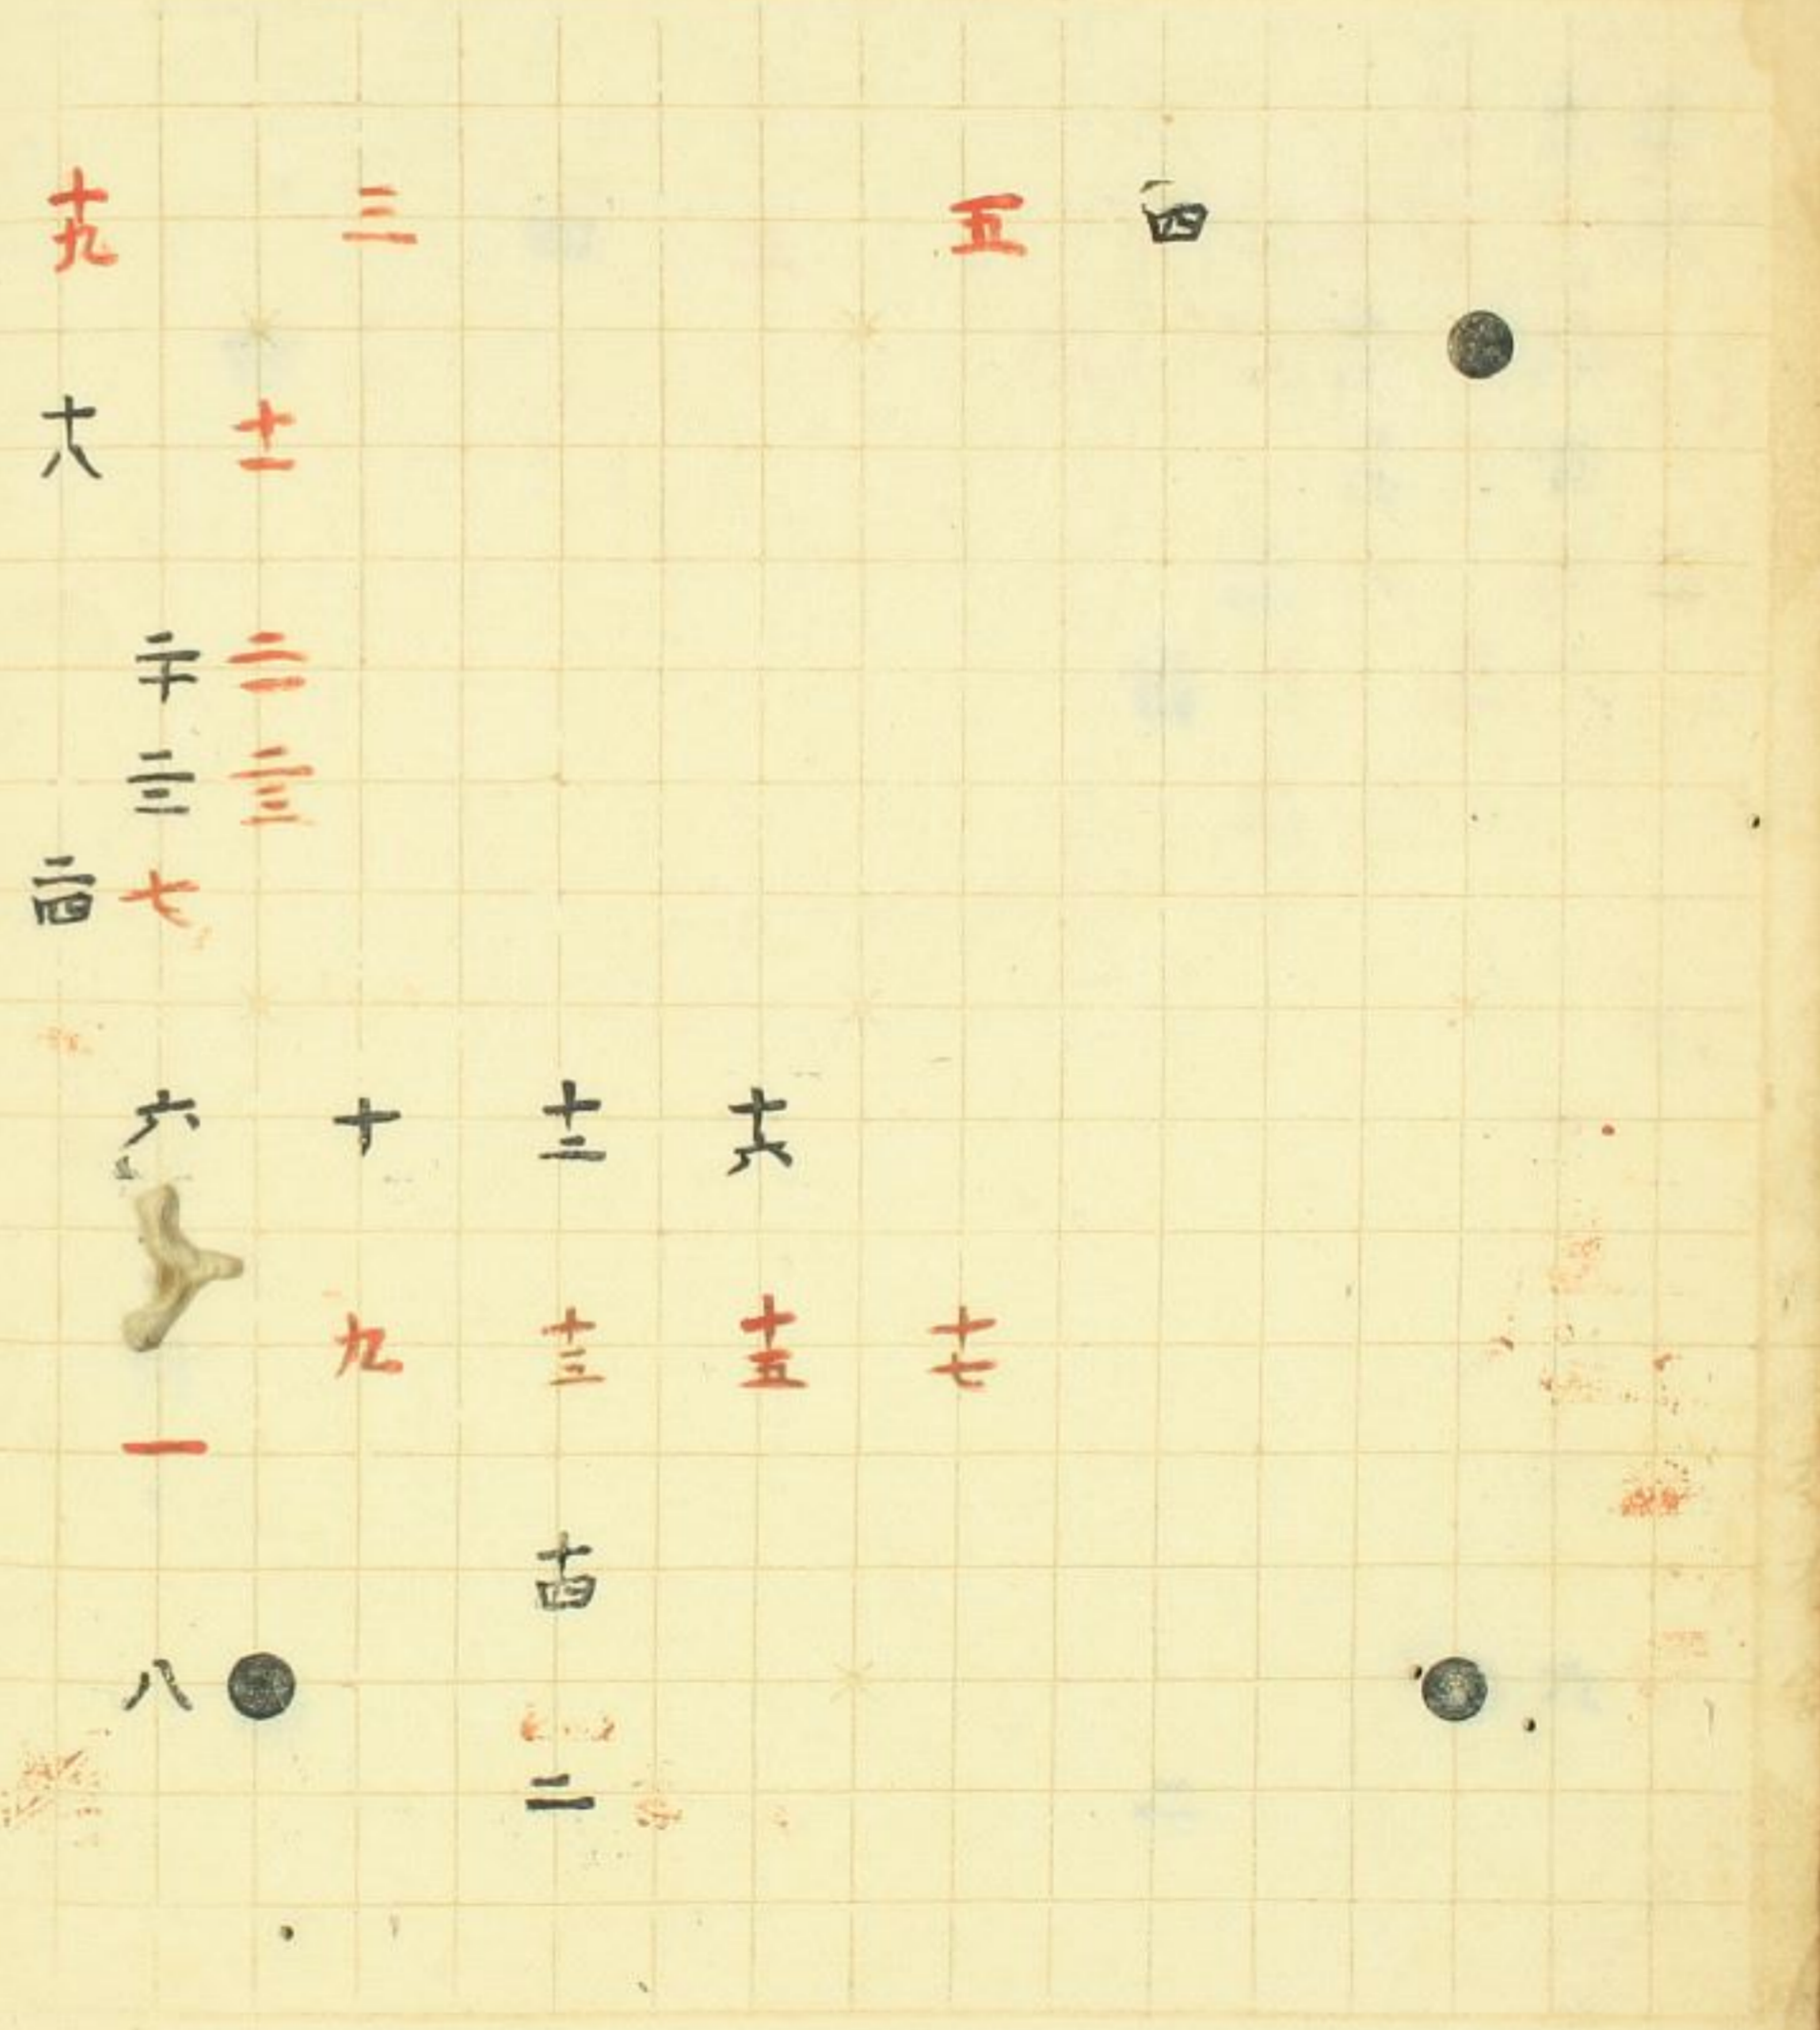 十九 三 五 四
十八 十一
二十 二一
二二 二三
二四 七
六 十 十二 十六
九 十三 十五 十七
一
十四
八
二